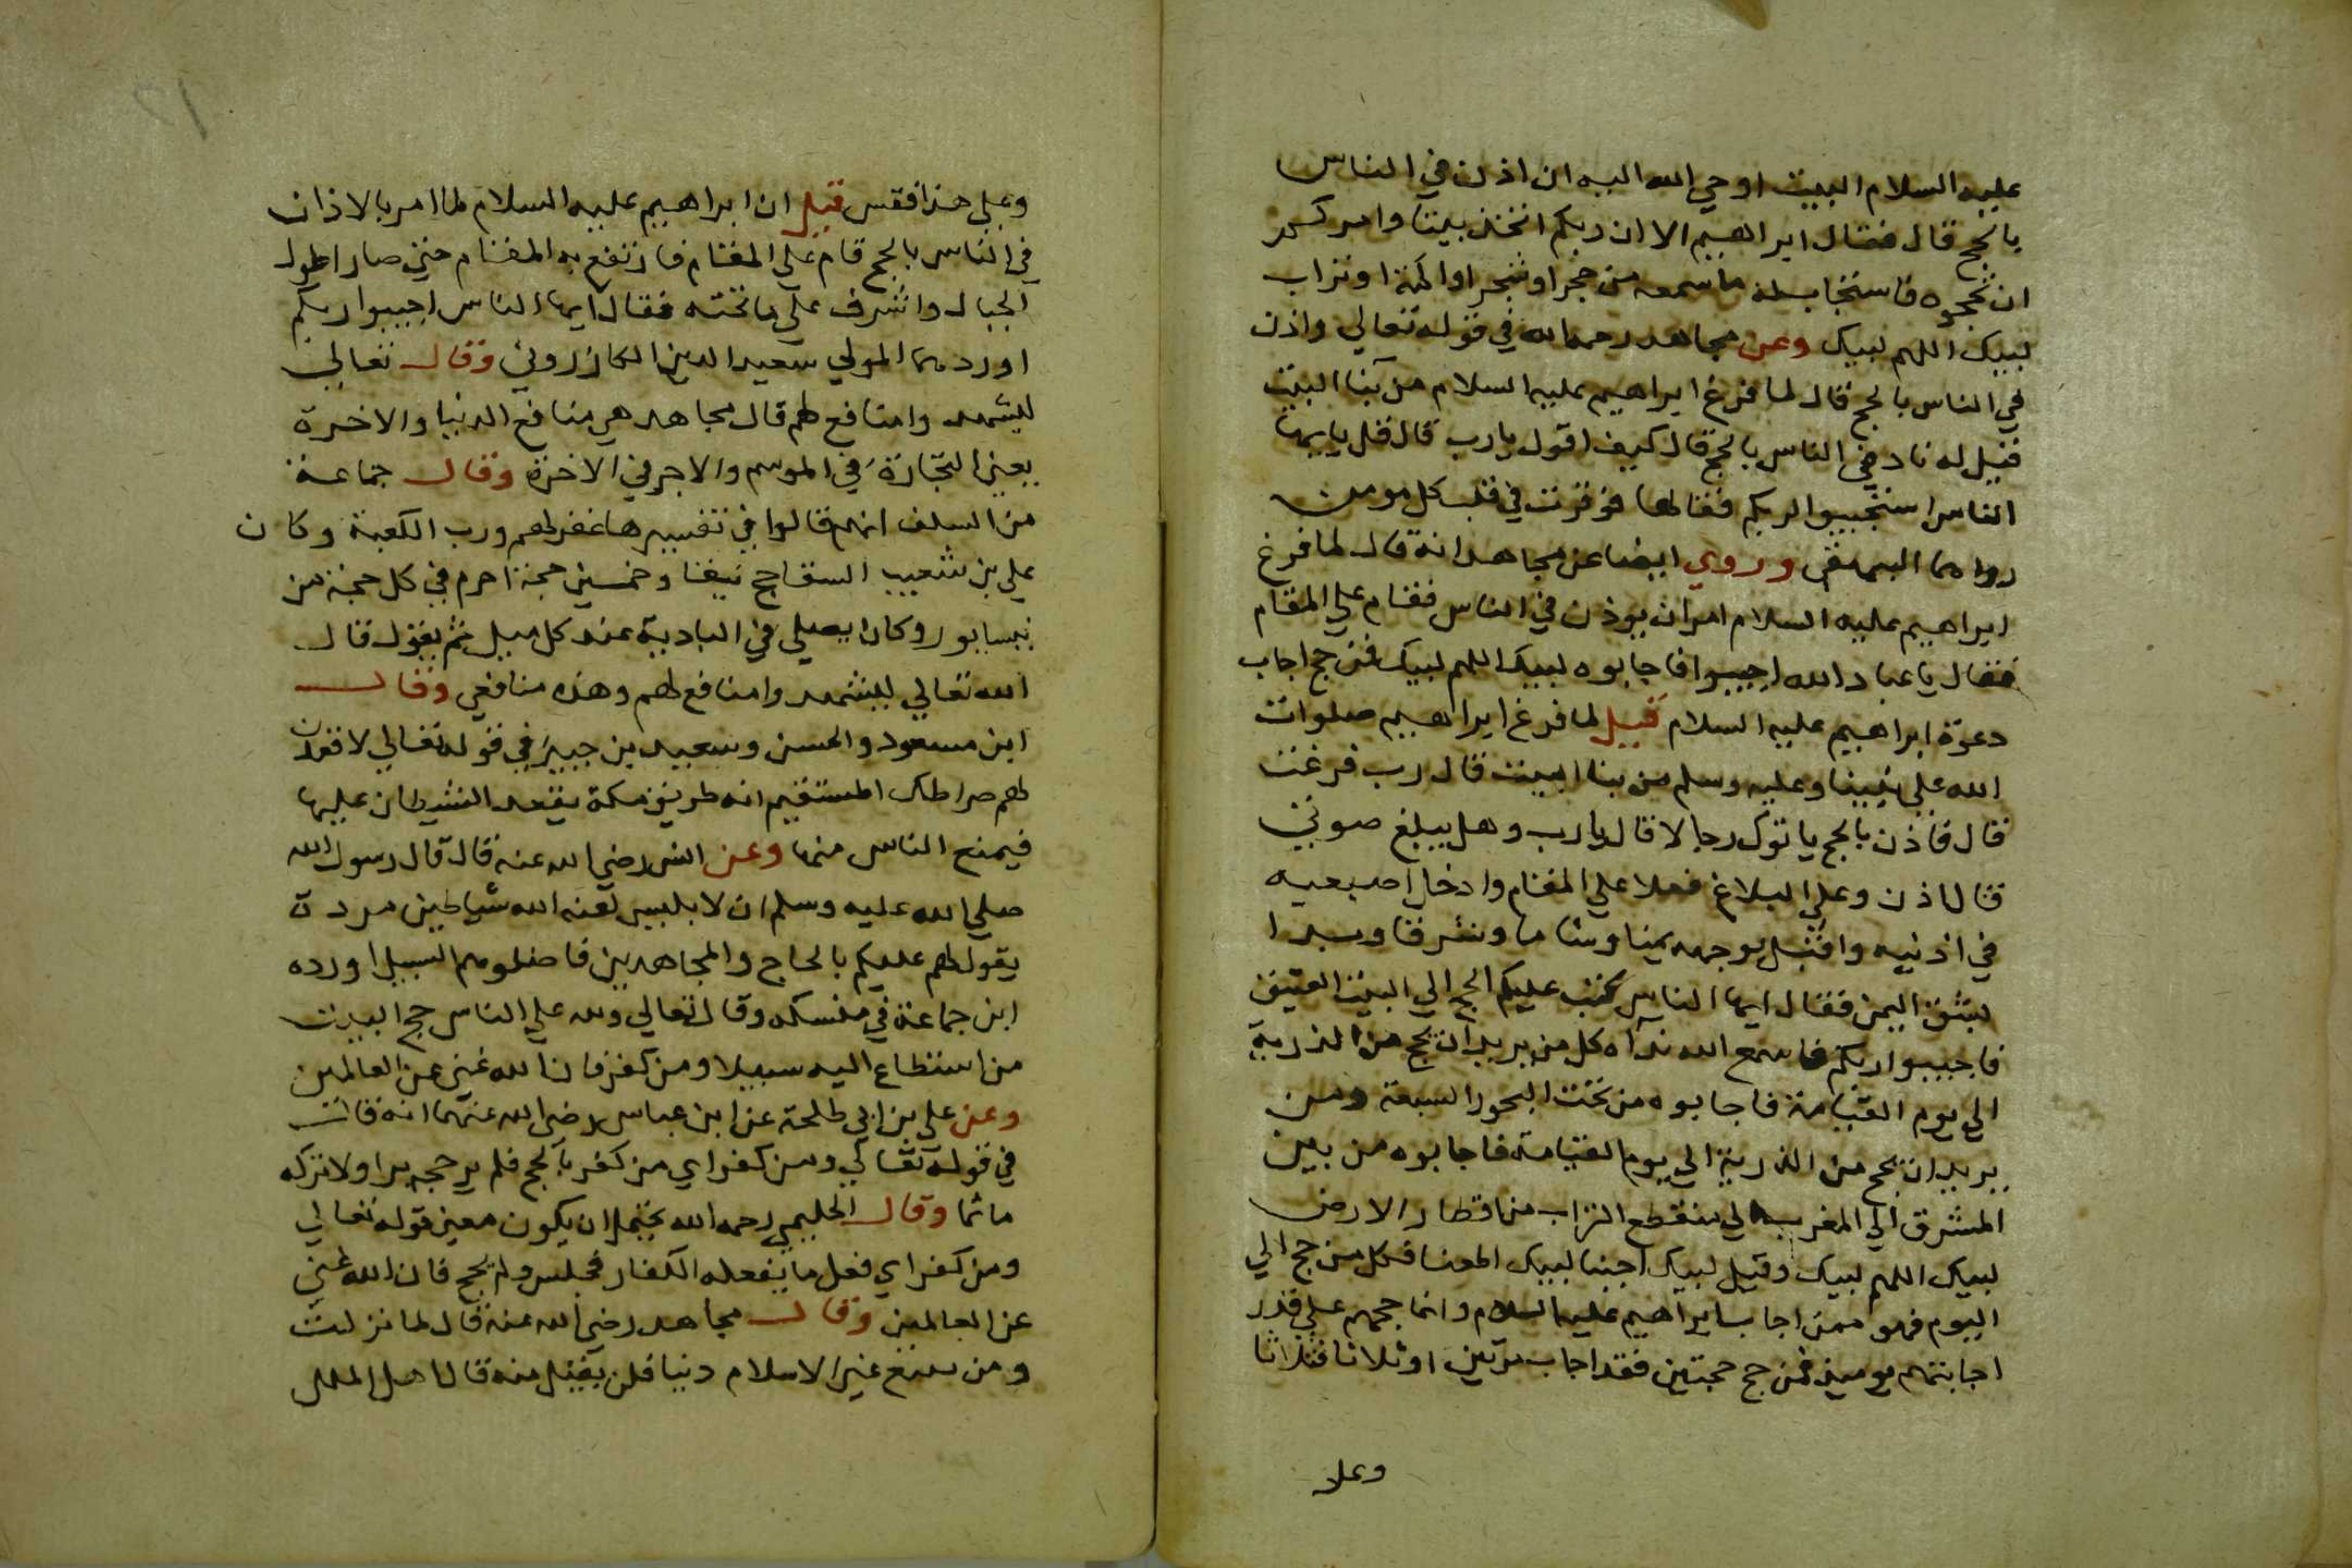 عليه السلام البيت اوحي الله اليه ان اذن في الناس
بالحج قال فقال ابراهيم الا ان ربكم اتخذ بيتا وامركم
ان تحجوه فاستجاب له ما سمعه من حجر او شجر او اكمة او تراب
لبيك اللهم لبيك وعن مجاهد رحمه الله في قوله تعالي واذن
في الناس بالحج قال لما فرغ ابراهيم عليه السلام من بنا البيت
فقيل له ناد في الناس بالحج قال كيف اقول يا رب قال قل يا ايها
الناس استجيبوا لربكم فقالها فوقرت في قلب كل مومن
رواهما البيهقي وروي ايضا عن مجاهد انه قال لما فرغ
ابراهيم عليه السلام امر ان يوذن في الناس فقام علي المقام
فقال يا عباد الله اجيبوا فاجابوه لبيك اللهم لبيك فمن حج اجاب
دعوة ابراهيم عليه السلام قيل لما فرغ ابراهيم صلوات
الله علي نبينا وعليه وسلم من بنا البيت قال رب فرغت
قال فاذن بالحج ياتوك رجالا قال يا رب وهل يبلغ صوتي
قال اذن وعلي البلاغ فعلا علي المقام وادخل اصبعيه
في اذنيه واقبل بوجهه يمينا وشاما وشرقا وبدا
بشق اليمن فقال ايها الناس كتب عليكم الحج الي البيت العتيق
فاجيبوا ربكم فاسمع الله نداه كل من يريد ان يحج من الذرية
الي يوم القيامة فاجابوه من تحت البحور السبعة ومن
يريد ان يحج من الذرية الي يوم القيامة فاجابوه من بين
المشرق الي المغرب الي منقطع التراب من اقطار الارض
لبيك اللهم لبيك وقيل لبيك اجبنا لبيك المعنا فكل من حج الي
اليوم فهو ممن اجاب ابراهيم عليه السلام وانما حجهم علي قدر
اجابتهم يوميذ فمن حج حجتين فقد اجاب مرتين او ثلاثا فثلاثا
وعلا
وعلي هذا فقس قيل ان ابراهيم عليه السلام لما امر بالاذان
في الناس بالحج قام علي المقام فارتفع به المقام حتي صار اطول
الجبال واشرف علي ما تحته فقال ايها الناس اجيبوا ربكم
اوردهما المولي سعيد الدين الكازروني وقال تعالي
ليشهدوا منافع لهم قال مجاهد هي منافع الدنيا والاخرة
يعني التجارة في الموسم والاجر في الاخرة وقال جماعة
من السلف انهم قالوا في تفسيرها غفر لهم ورب الكعبة وكان
علي بن شعيب السقا حج نيفا وخمسين حجة احرم في كل حجة من
نيسابور وكان يصلي في البادية عند كل ميل ثم يقول قال
الله تعالي ليشهدوا منافع لهم وهذه منافعي وقال
ابن مسعود والحسن وسعيد بن جبير في قوله تعالي لاقعدن
لهم صراطك المستقيم انه طريق مكة يقعد الشيطان عليها
فيمنع الناس منها وعن انس رضي الله عنه قال قال رسول الله
صلي الله عليه وسلم ان لابليس لعنه الله شياطين مردة
يقول لهم عليكم بالحاج والمجاهدين فاضلوهم السبيل اورده
ابن جماعة في منسكه وقال تعالي ولله علي الناس حج البيت
من استطاع اليه سبيلا ومن كفر فان الله غني عن العالمين
وعن علي بن ابي طلحة عن ابن عباس رضي الله عنهما انه قال
في قوله تعالي ومن كفر اي من كفر بالحج فلم ير حجه برا ولا تركه
ماثما وقال الحليمي رحمه الله يحتمل ان يكون معني قوله تعالي
ومن كفر اي فعل ما يفعله الكفار فجلس ولم يحج فان الله غني
عن العالمين وقال مجاهد رضي الله عنه قال لما نزلت
ومن يبتغ غير الاسلام دينا فلن يقبل منه قال اهل الملل